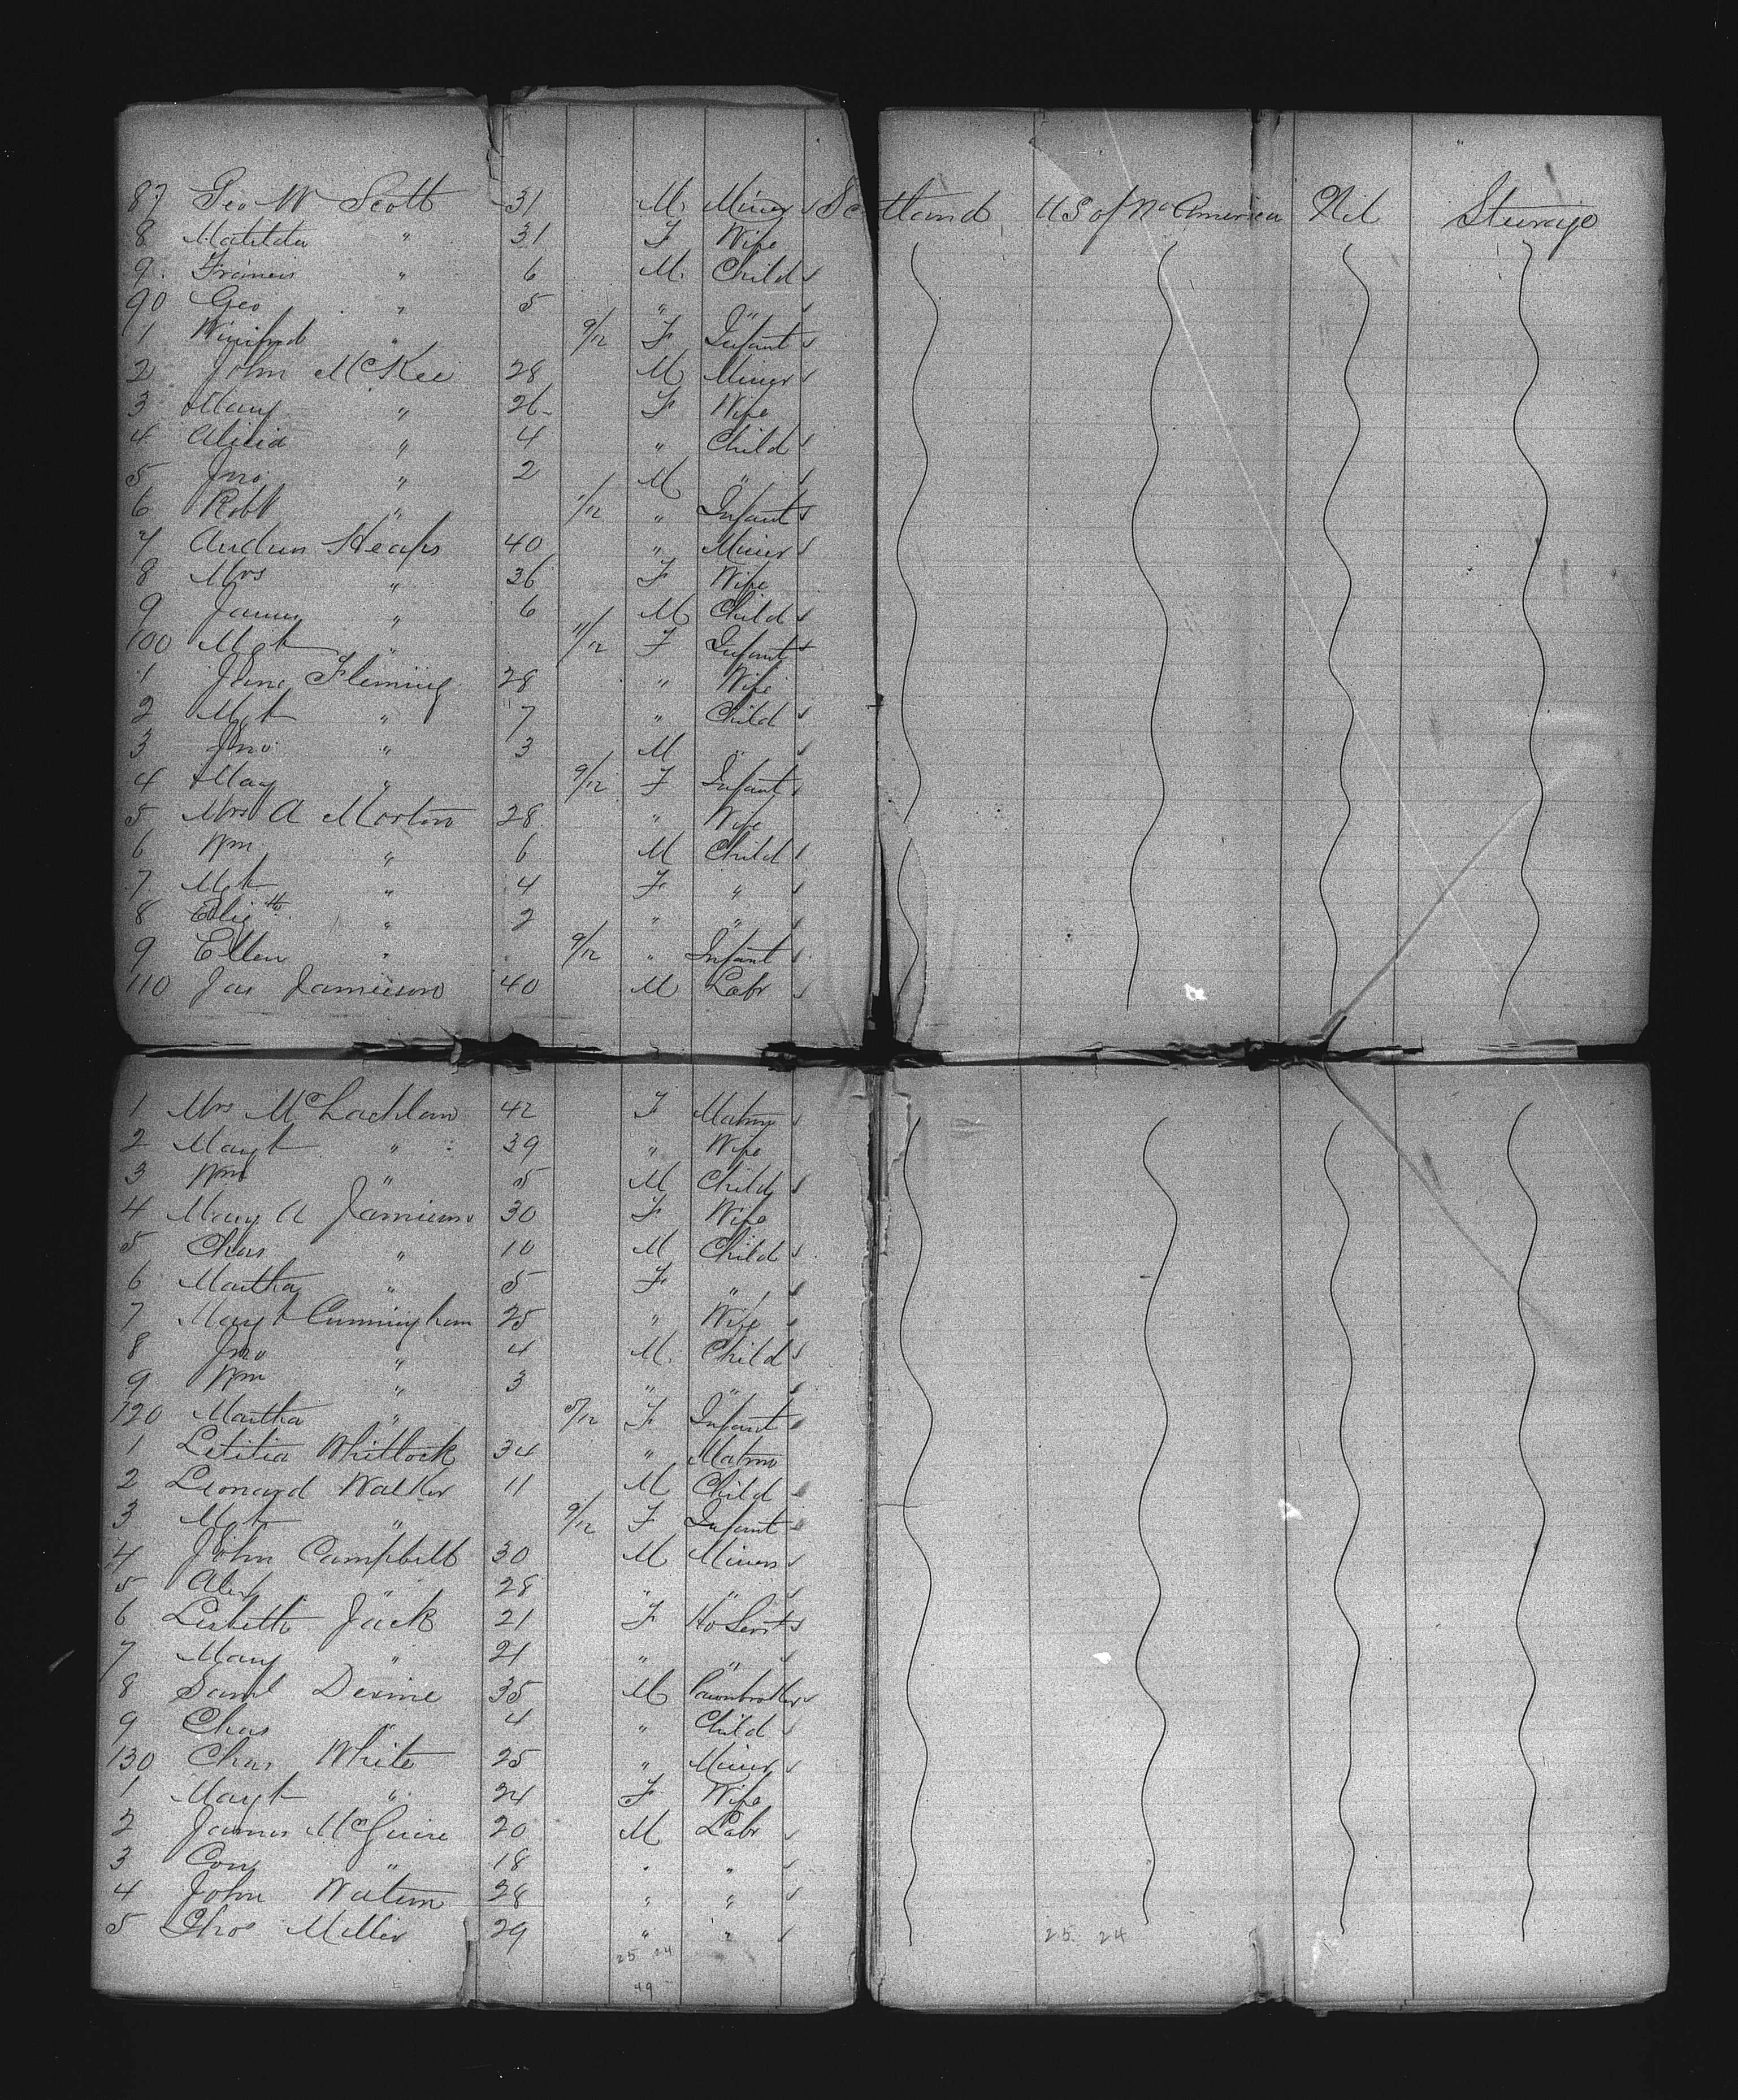 87 Geo W Scott 31 M Miner Scotland U S of No America Nil Steerage
8 Matilda " 31 F Wife
9 Francis " 6 M Child
90 Geo " 5 " "
1 Winifred " 9/12 F Infant
2 John McKee 28 M Miner
3 Mary " 26 F Wife
4 Alicia " 4 " Child
5 Jno " 2 M "
6 Robt " 1/12 " Infant
7 Andrew Heaps 40 " Miner
8 Mrs " 36 F Wife
9 James " 6 M Child
100 Mgt " 11/12 F Infant
1 Jane Fleming 28 " Wife
2 Mgt " 7 " Child
3 Jno " 3 M "
4 May " 9/12 F Infant
5 Mrs A Morton 28 " Wife
6 Wm " 6 M Child
7 Mgt " 4 F "
8 Elizth " 2 " "
9 Ellen " 9/12 " Infant
110 Jas Jamieson 40 M Labr
1 Mrs McLachlan 42 F Matron
2 Magt " 39 " Wife
3 Wm " 5 M Child
4 Mary A Jamieson 30 F Wife
5 Chas " 10 M Child
6 Martha " 5 F "
7 Magt Cunningham 25 " Wife
8 Jno " 4 M Child
9 Wm " 3 " "
120 Martha " 5/12 F Infant
1 Letitia Whitlock 34 " Matron
2 Leonard Walker 11 M Child
3 Mgt " 9/12 F Infant
4 John Campbell 30 M Miners
5 Alex " 28 " "
6 Lisbeth Jack 21 F Ho Servts
7 Mary " 21 " "
8 Saml Devine 35 M Pawnbroker
9 Chas " 4 " Child
130 Chas White 25 " Miner
1 Magt " 24 F Wife
2 James McGuire 20 M Labr
3 Con " 18 " "
4 John Watson 28 " "
5 Thos Miller 29 " "
25 24 25 24
49